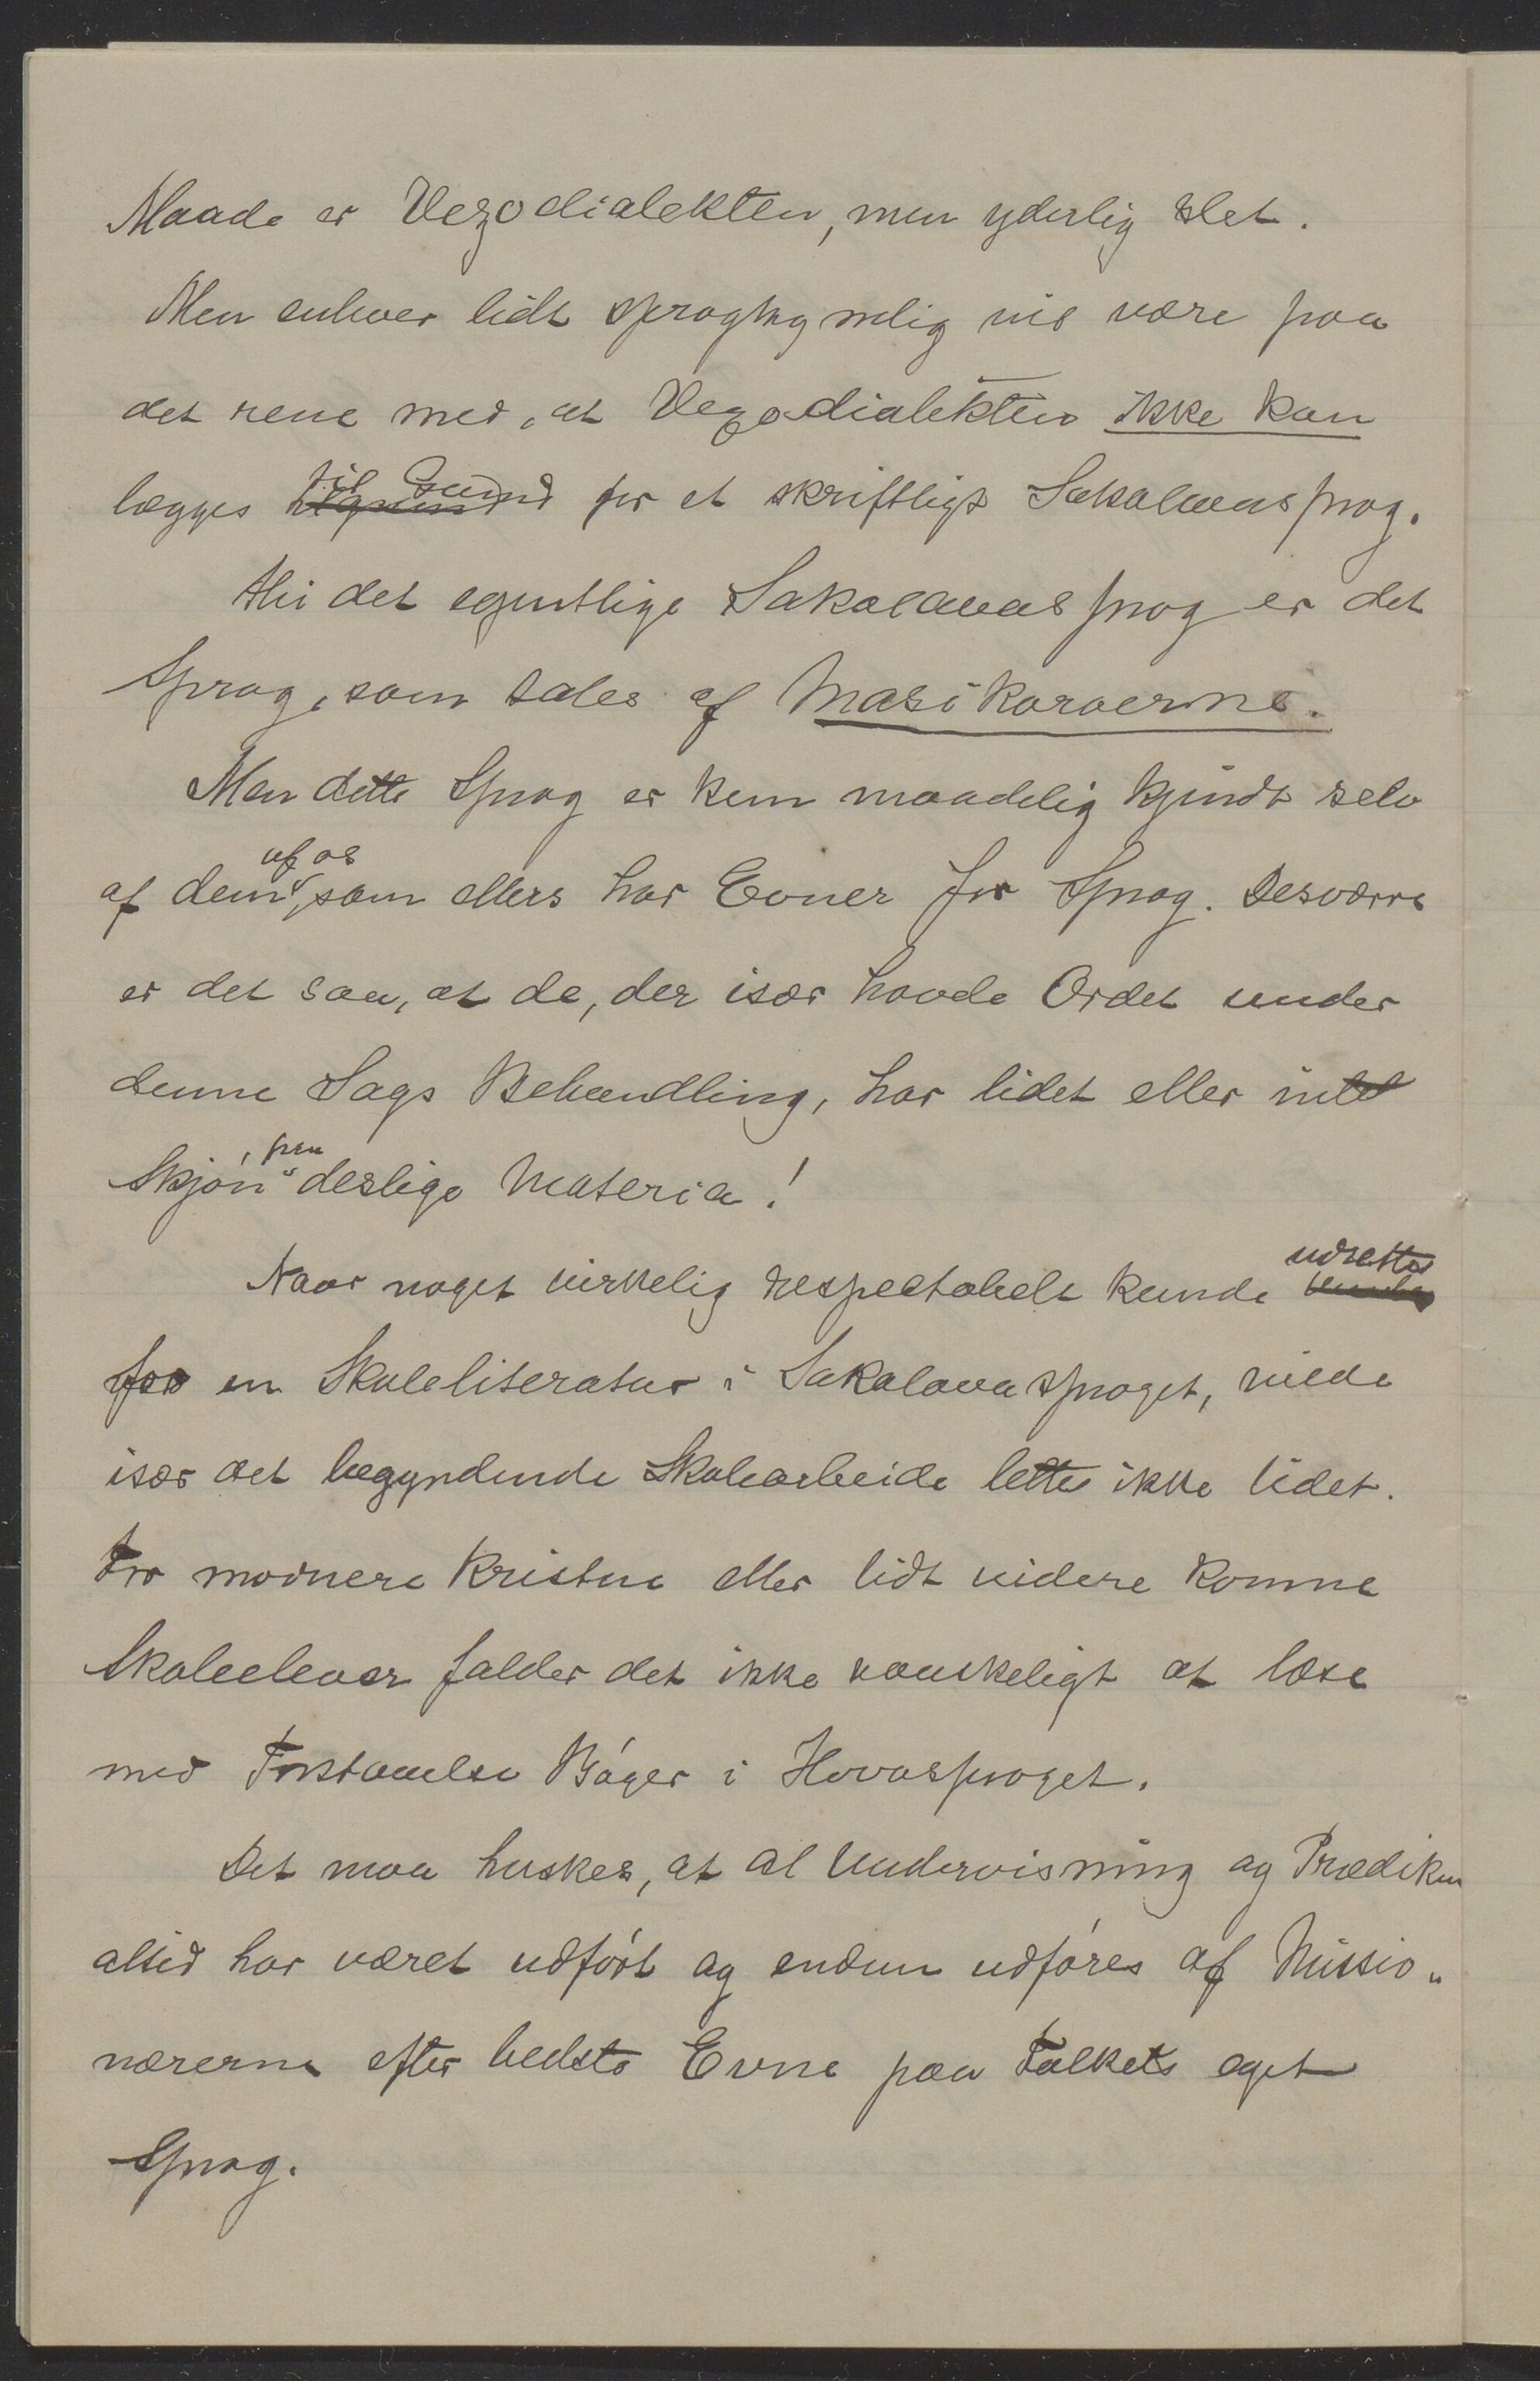 Maade er Vezodialekten, men yderlig slet.
Men enhver lidt sprogkyndig vil være paa
det rene med, at Vezodialekten ikke kan
lægges til Grund for et skriftligt Sakalavasprog.
thi det egentlige Sakalavasprog er det
Sprog, som tales af Masikoroerne.
Men dette Sprog er kun maadelig kjendt selv
af dem af os, som ellers har Evner for Sprog. Desværre
er det saa, at de, der især havde Ordet under
denne Sags Behandling, har lidet eller intet
Skjøn paa deslige Materia!
Naar noget virkelig respektabelt kunde udrettes
for en Skoleliteratur i Sakalavasproget, vilde
især det begyndende Skolearbeide lettes ikke lidet.
For modnere Kristne eller lidt videre komne
Skoleelever falder det ikke vanskeligt at læse
med Forstaaelse Bøger i Hovasproget.
Det maa huskes, at al Undervisning og Prædiken
altid har været udført og endnu udføres af Missio„
nærerne efter bedste Evne paa Folkets eget
Sprog.